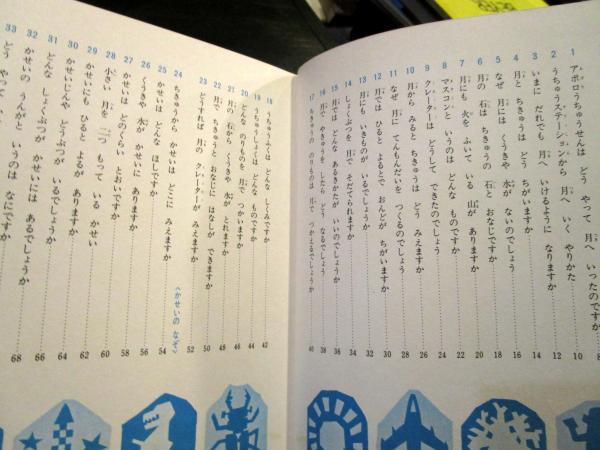 1 アポロうちゅうせんは どう やって 月へ いったのですか 8
2 うちゅうステーションから 月へ いく やりかた 10
3 いまに だれでも 月へ いけるように なりますか 12
4 月と ちきゅうは どう ちがいますか 14
5 なぜ 月には くうきや 水が ないのでしょう 16
6 月の 石は ちきゅうの 石と おなじですか 18
7 月にも 火を ふいて いる 山が ありますか 20
8 マスコンと いうのは どんな ものですか 22
9 クレーターは どうして できたのでしょう 24
10 月から みると ちきゅうは どう みえますか 26
11 なぜ 月に てんもんだいを つくるのでしょう 28
12 月では ひると よるとで おんどが ちがいますか 30
13 月にも いきものが いるでしょうか 32
14 しょくぶつを 月で そだてられますか 34
15 月では どんな あるきかたが いいのでしょうか 36
16 月で やきゅうを したら どう なるでしょう 38
17 ちきゅうの のりものは 月で つかえるでしょうか 40
18 うちゅうふくは どんな しくみですか 42
19 うちゅうしょくは どんな ものですか 44
20 どんな のりものを 月で つかいますか 46
21 月の 石から くうきや 水が とれますか 48
22 月で ちきゅうと おなじに はなしが できますか 50
23 どうすれば 月の クレーターが みえますか 52
〈かせいの なぞ〉
24 ちきゅうから かせいは どこに みえますか 54
25 かせいは どんな ほしですか 56
26 くうきや 水が かせいに ありますか 58
27 かせいは どのくらい とおいですか 60
28 小さい 月を 二つ もって いる かせい
29 かせいにも ひると よるが ありますか 62
30 かせいじんや どうぶつが いるでしょうか 64
31 どんな しょくぶつが かせいには あるでしょうか 66
32 かせいの うんがと いうのは なにですか 68
33 どう やって